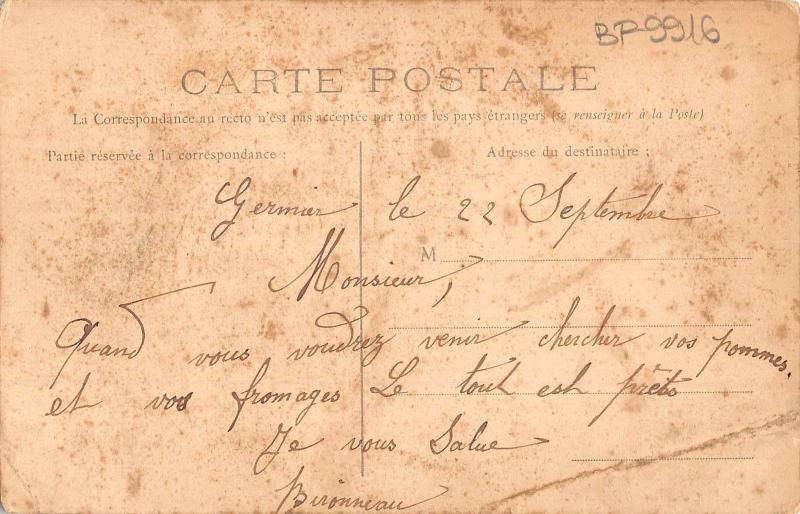 BP-9916
CARTE POSTALE
La Correspondance au recto n'est pas acceptée par tous les pays étrangers (se renseigner à la Poste)
Partie réservée à la correspondance :
Adresse du destinataire :
Germier le 22 Septembre
M
Monsieur,
Quand vous voudrez venir chercher vos pommes.
et vos fromages Le tout est prêts
Je vous Salue
Bironneau